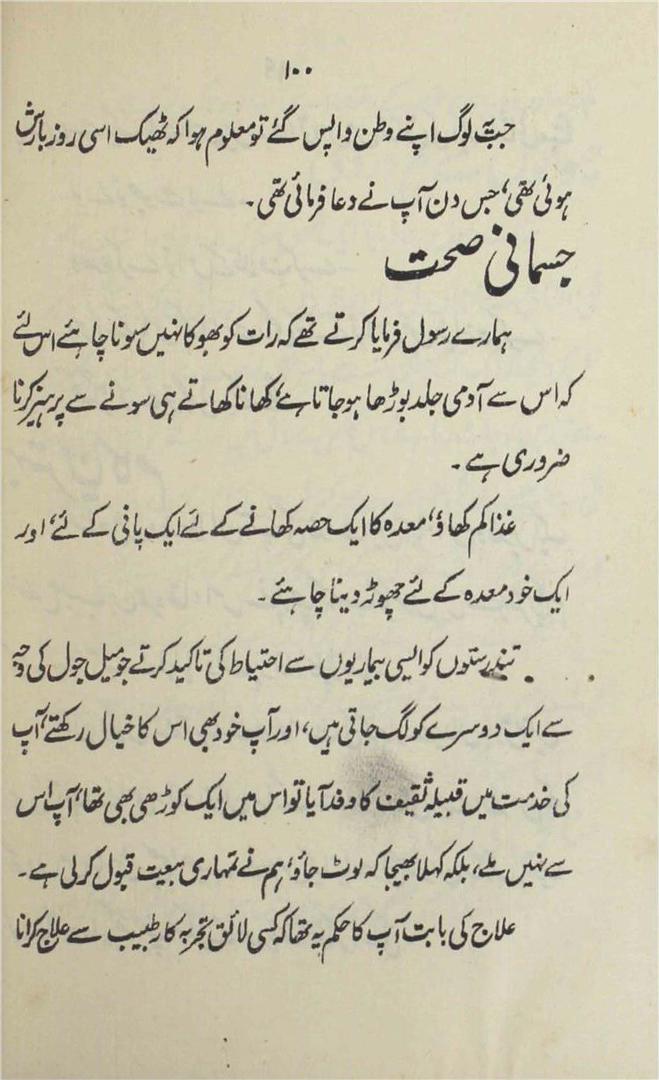 ۱۰۰
جب یہ لوگ اپنے وطن واپس گئے تو معلوم ہوا کہ ٹھیک اسی روز بارش
ہوئی تھی، جس دن آپ نے دعا فرمائی تھی۔
جسمانی صحت
ہمارے رسول فرمایا کرتے تھے کہ رات کو بھوکا نہیں سونا چاہئے اس لئے
کہ اس سے آدمی جلد بوڑھا ہو جاتا ہے، کھانا کھاتے ہی سونے سے پرہیز کرنا
ضروری ہے۔
غذا کم کھاؤ، معدہ کا ایک حصہ کھانے کے لئے ایک پانی کے لئے، اور
ایک خود معدہ کے لئے چھوڑ دینا چاہئے۔
تندرستوں کو ایسی بیماریوں سے احتیاط کی تاکید کرتے جو میل جول کی وجہ
سے ایک دوسرے کو لگ جاتی ہیں، اور آپ خود بھی اس کا خیال رکھتے، آپ
کی خدمت میں قبیلہ ثقیف کا وفد آیا تو اس میں ایک کوڑھی بھی تھا، آپ اس
سے نہیں ملے، بلکہ کہلا بھیجا کہ لوٹ جاؤ، ہم نے تمہاری بیعت قبول کر لی ہے۔
علاج کی بابت آپ کا حکم یہ تھا کہ کسی لائق تجربہ کار طبیب سے علاج کرانا